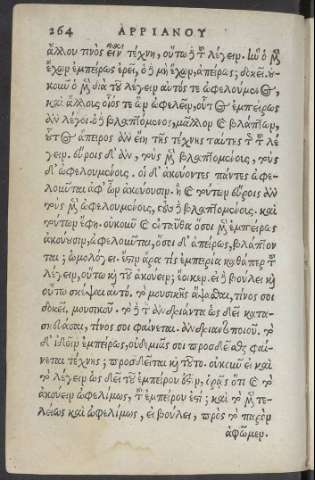 264 ΑΡΡΙΑΝΟΥ
ἄλλου τινὸς ἐστὶ τέχνη, οὕτω ἢ τ͂ λέγειν. ὧν ὁ μὲν
ἔχων ἐμπείρως ἐρεῖ, ὁ μὴ ἔχων, ἀπείρως; δοκεῖ. οὐ-
κοῦν ὁ μὲν διὰ τοῦ λέγειν αὐτός τε ὠφελούμενος,
καὶ ἄλλοις οἷός τε ὢν ὠφελεῖν, οὗτος ἐμπείρως
ἂν λέγοι. ὁ δὲ βλαπτόμενος, μᾶλλον καὶ βλάπτων,
οὗτος ἄπειρος ἂν εἴη τῆς τέχνης ταύτης τῆς τοῦ λέ
γειν. εὕροις δ' ἂν, τοὺς μὲν βλαπτομένους, τοὺς
δ' ὠφελουμένους. οἱ δ' ἀκούοντες πάντες ὠφε-
λοῦνται ἀφ' ὧν ἀκούουσιν. ἢ καὶ τούτων εὕροις ἂν
τοὺς μὲν ὠφελουμένους, τοὺς δὲ βλαπτομένους. καὶ
τούτων ἔφη. οὐκοῦν καὶ ἐνταῦθα ὅσοι μὲν ἐμπείρως
ἀκούουσιν, ὠφελοῦνται, ὅσοι δ' ἀπείρως, βλάπτον
ται; ὡμολόγει. ἔστιν ἄρα τὶς ἐμπειρία καθάπερ τοῦ
λέγειν, οὕτω καὶ τοῦ ἀκούειν; ἔοικεν. εἰ δὲ βούλει καὶ
οὕτω σκέψαι αὐτό. τὸ μουσικῶς ἅψασθαι, τίνος σοι
δοκεῖ. μουσικοῦ. τὸ δὲ τὸν ἀνδριάντα ὡς δεῖ κατα-
σκευάσαι, τίνος σοι φαίνεται. ἀνδριαντοποιοῦ. τὸ
δ' ἰδεῖν ἐμπείρως, οὐδεμιᾶς σοι προσδεῖσθαι φαί-
νεται τέχνης; προσδεῖται καὶ τοῦτο. οὐκοῦν εἰ καὶ
τὸ λέγειν ὡς δεῖ τοῦ ἐμπείρου ἐστὶν, ὁρᾷς ὅτι καὶ τὸ
ἀκούειν ὠφελίμως, τοῦ ἐμπείρου ἐστί; καὶ τὸ μὲν τε-
λείως καὶ ὠφελίμως, εἰ βούλει, πρὸς τὸ παρὸν
ἀφῶμεν.